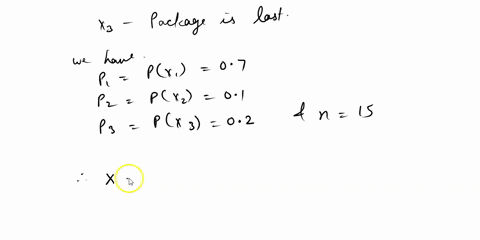 x3 - Package is last.
we have.
P1 = P(x1) = 0.7
P2 = P(x2) = 0.1
P3 = P(x3) = 0.2 & n = 15
∴ X =